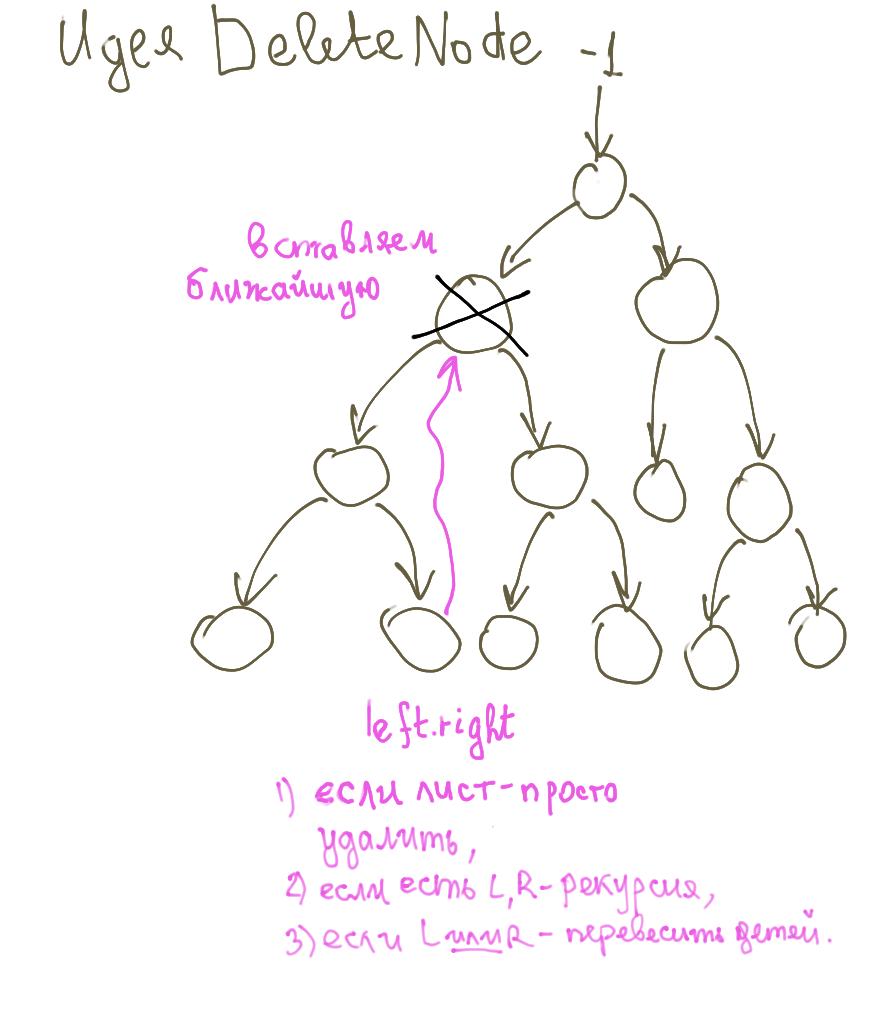 Идея DeleteNode -1
вставляем
ближайшую
left.right
1) если лист-просто
удалить,
2) если есть L,R-рекурсия,
3) если L или R - перевесить детей.